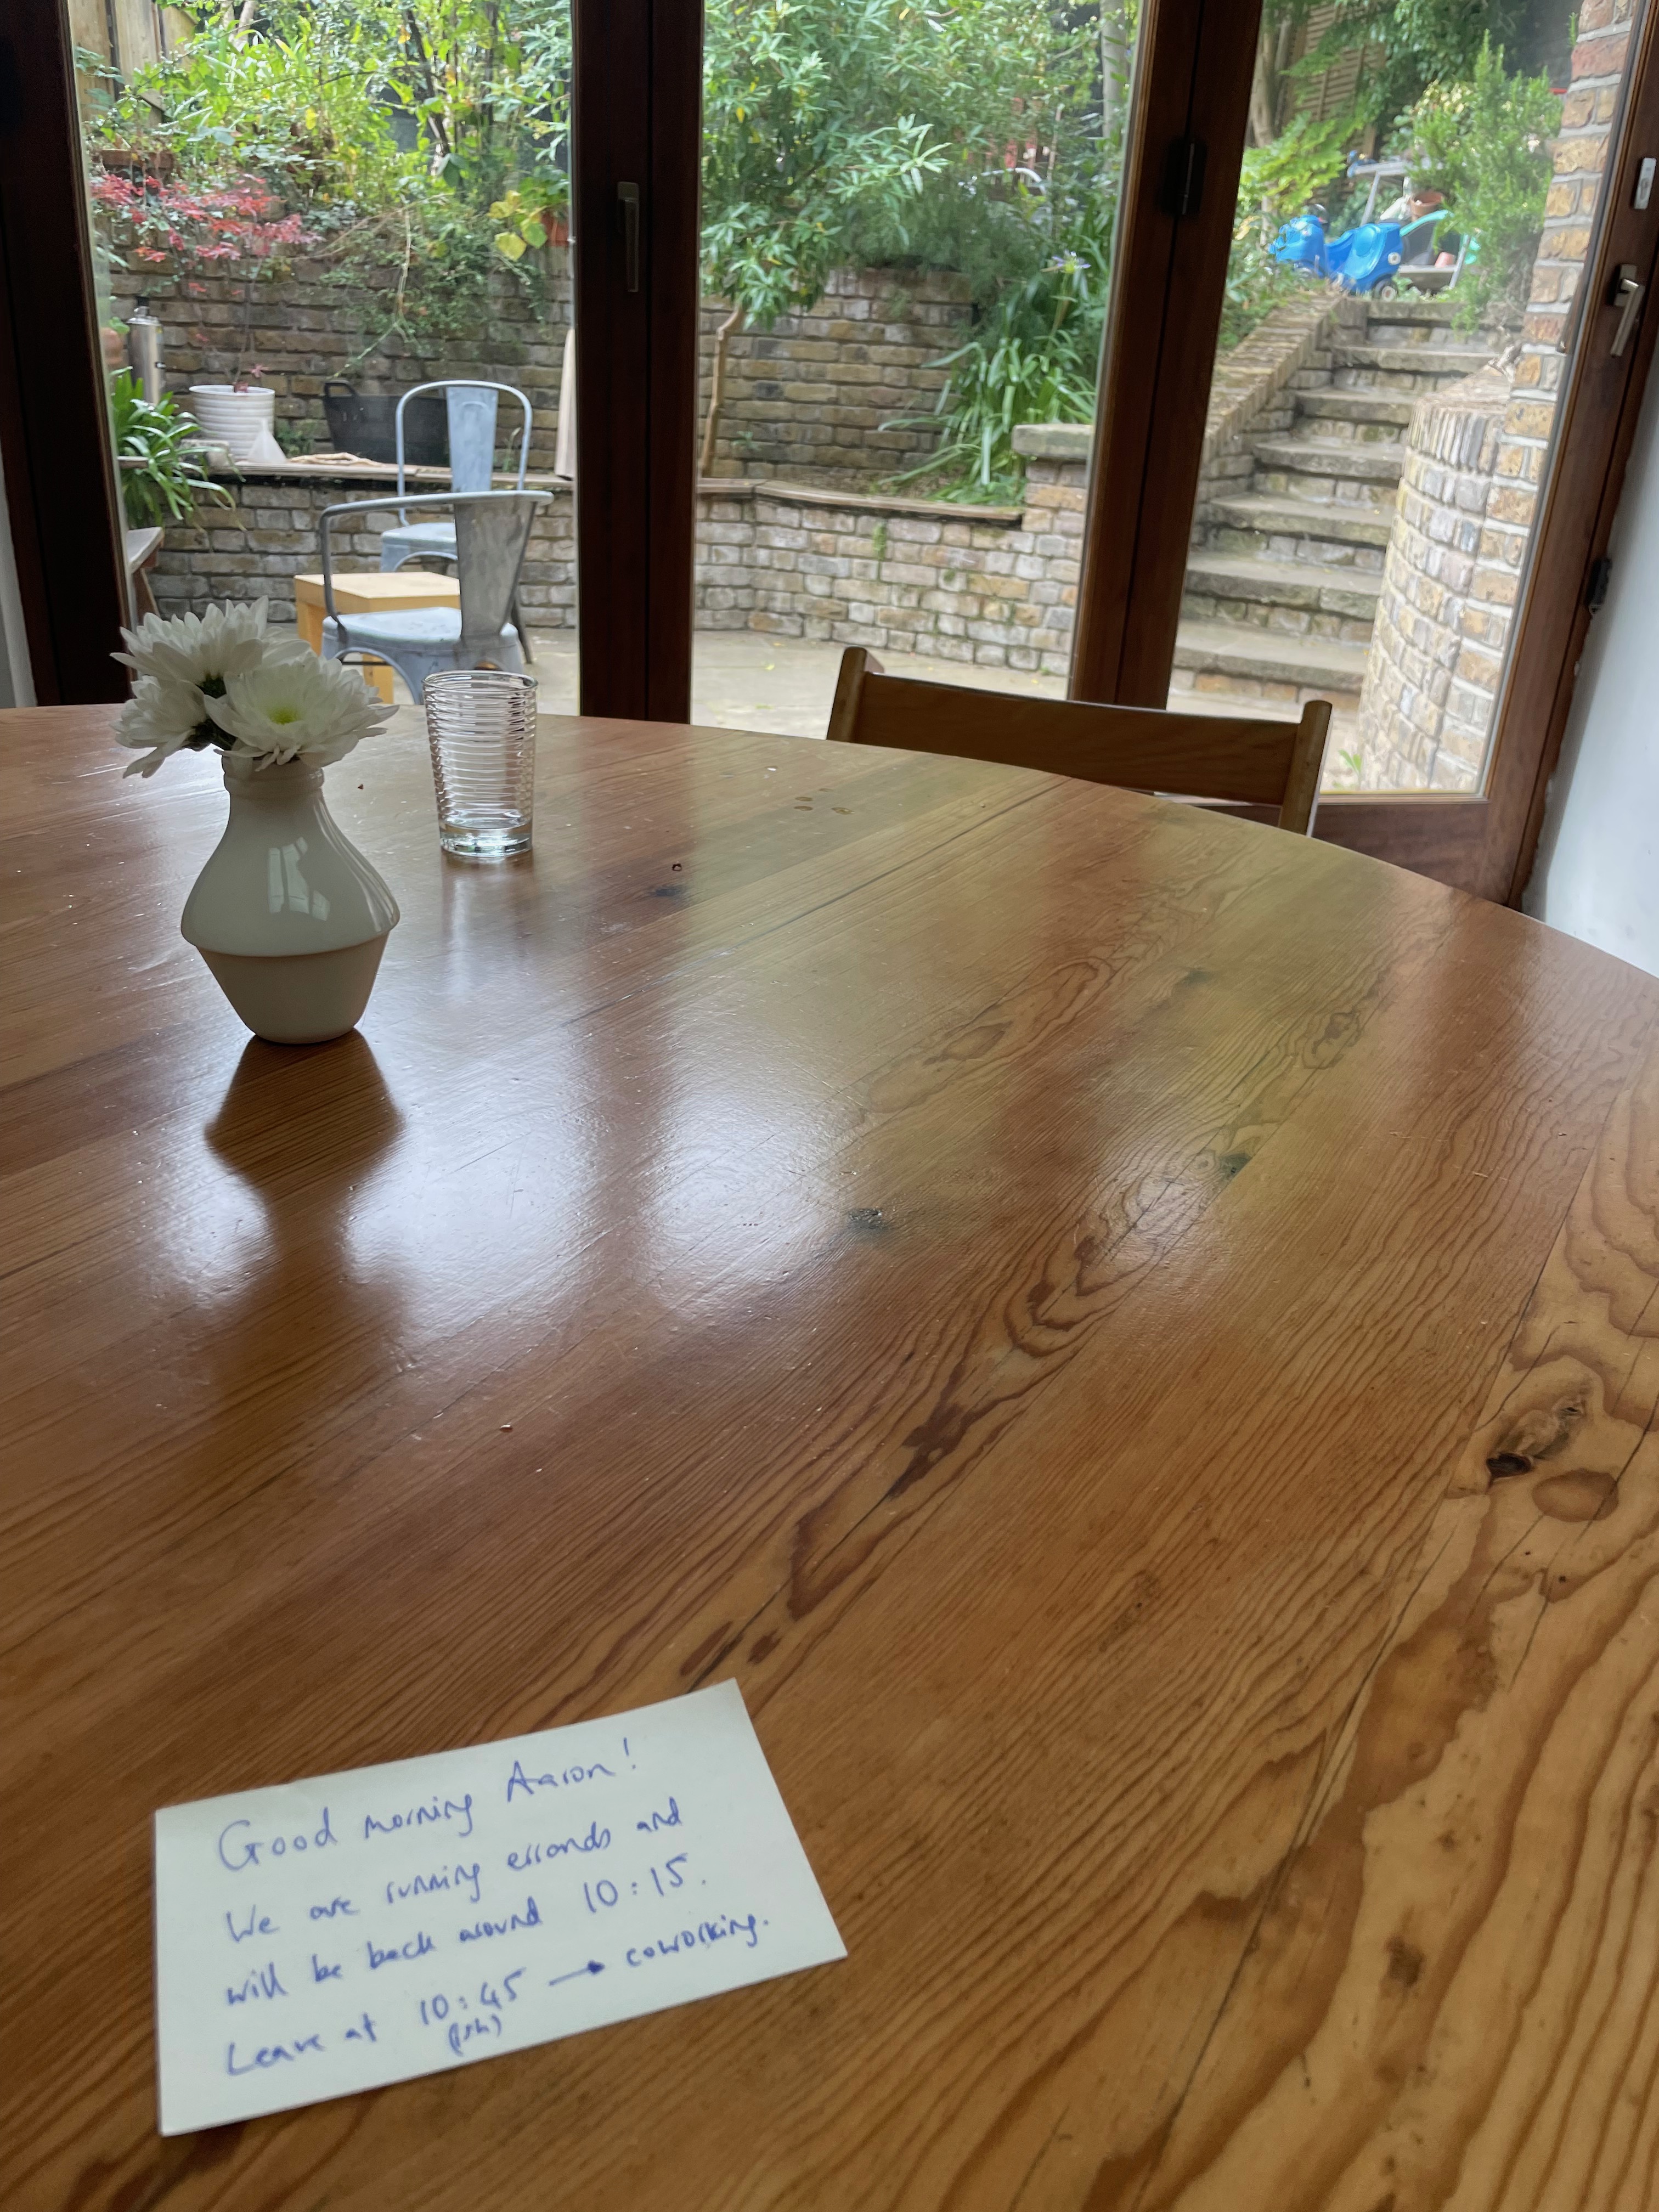 Good morning Aaron!
We are running errands and
will be back around 10:15.
Leave at 10:45 → coworking.
(ish)